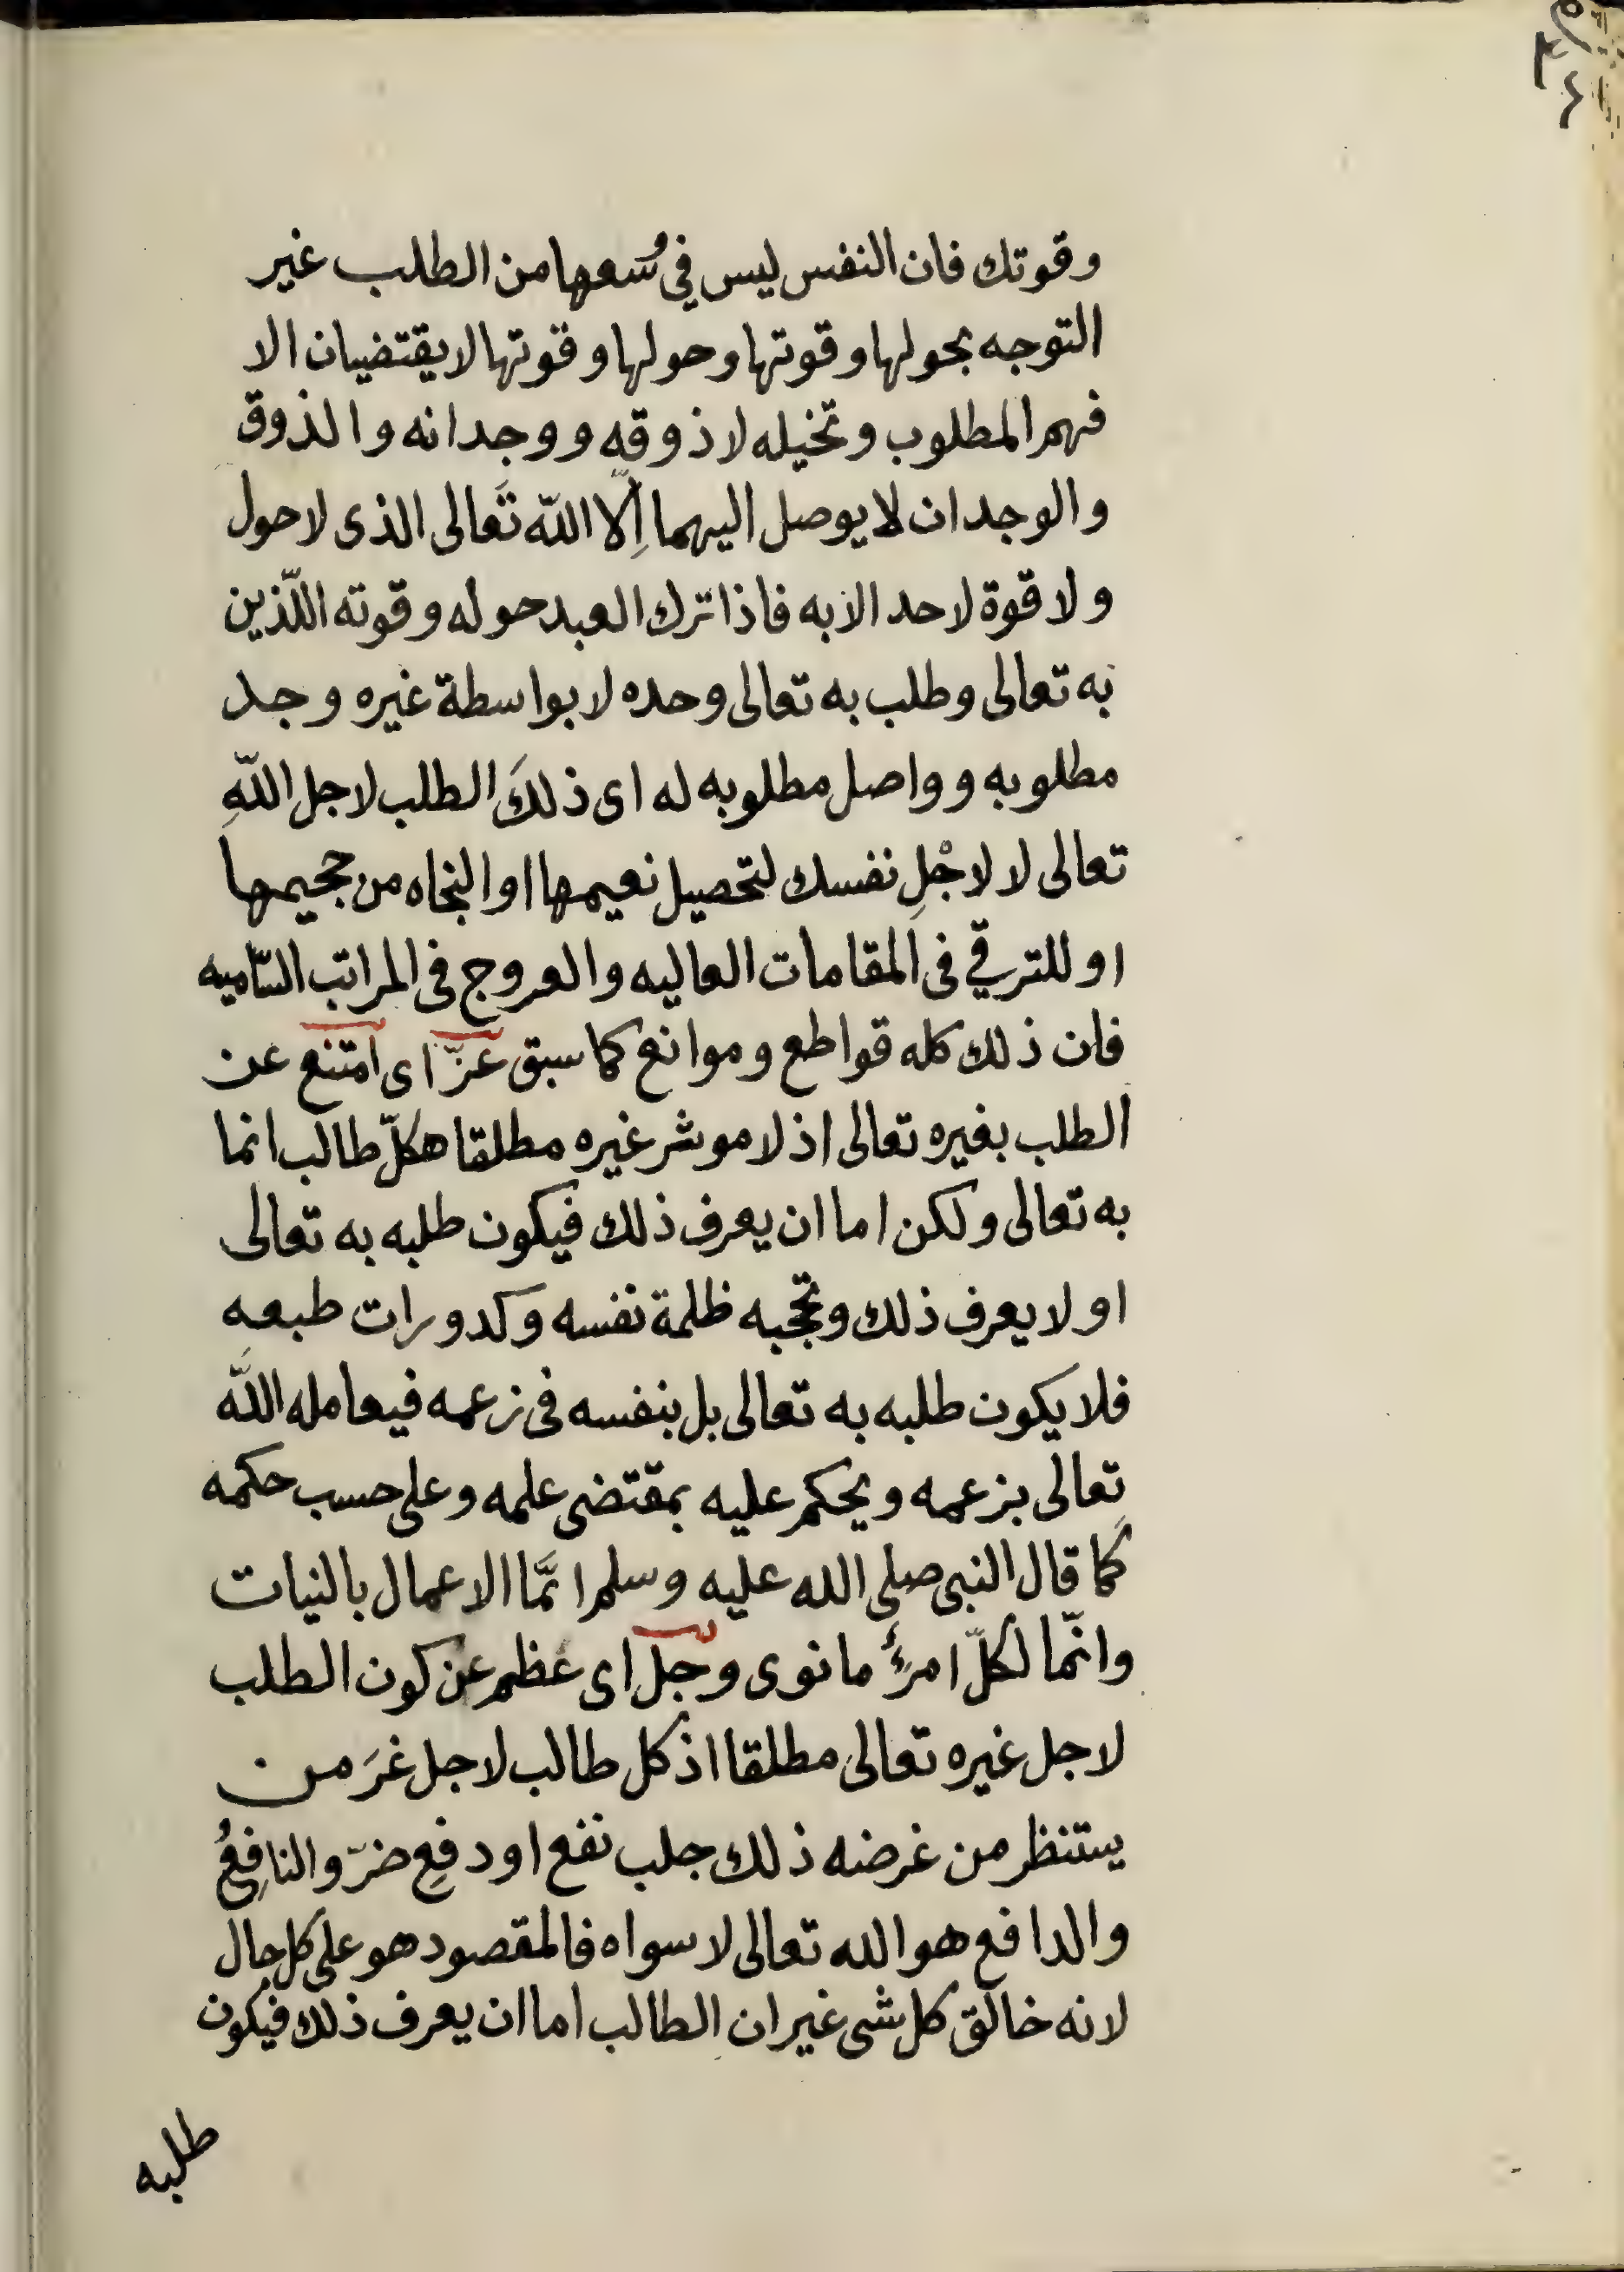 وقوتك فان النفس ليس في وُسعها من الطلب غير
التوجه بحولها وقوتها وحولها وقوتها لا يقتضيان الا
فهم المطلوب وتخيله لا ذوقه ووجدانه والذوق
والوجدان لا يوصل اليهما اِلّا اللّه تَعالى الذى لا حول
ولا قوة لاحد الا به فاذا ترك العبد حوله وقوته اللّذين
به تعالى وطلب به تعالى وحده لا بواسطة غيره وجد
مطلوبه وواصل مطلوبه له اى ذلكَ الطلب لاجل اللّهِ
تعالى لا لاجْلِ نفسك لتحصيل نعيمها او النجاه من جحيمها
او للترقي فى المقامات العاليه والعروج فى المراتب السّاميه
فان ذلك كله قواطع وموانع كما سبق عزّ اى امتنع عن
الطلب بغيره تعالى اذ لا موثر غيره مطلقا هكلّ طالب انما
به تعالى ولكن اما ان يعرف ذلك فيكون طلبه به تعالى
او لا يعرف ذلك وتحجبه ظلمة نفسه وكدورات طبعه
فلا يكون طلبه به تعالى بل بنفسه فى زعمه فيعامله اللّه
تعالى بزعمه ويحكم عليه بمقتضى علمه وعلى حسب حكمه
كَما قال النبى صلى الله عليه وسلم انَّما الاعمال بالنيات
وانّما لكلّ امرئٍ ما نوى وجل اى عظم عن كون الطلب
لاجل غيره تعالى مطلقا اذ كل طالب لاجل غرَ من
يستنظر من غرضه ذلك جلب نفع او دفعِ ضرّ والنافِعُ
والدافع هو الله تعالى لا سواه فالمقصود هو على كل حال
لانه خالق كل شى غير ان الطالب اما ان يعرف ذلك فيكون
طلبه